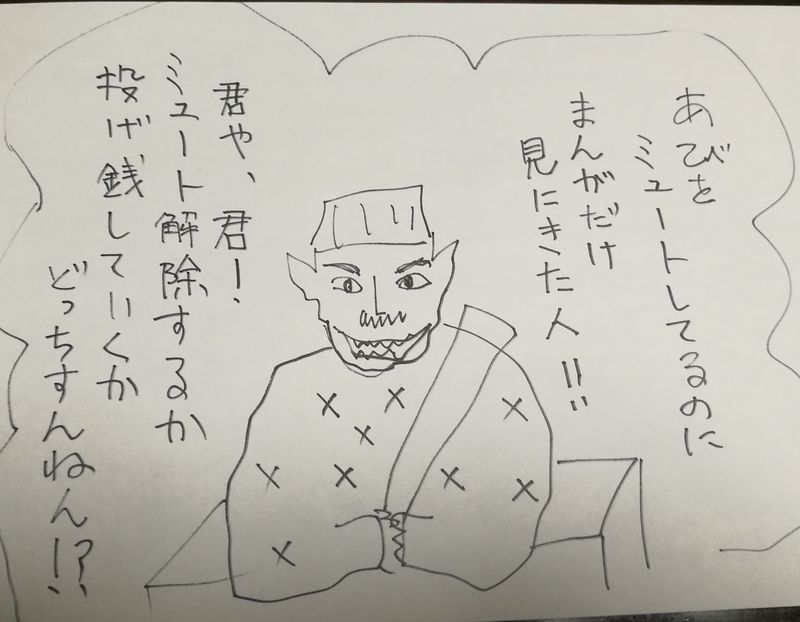 あびを
ミュートしてるのに
まんがだけ
見にきた人!!
君や、君!
ミュート解除するか
投げ銭していくか
どっちすんねん!?